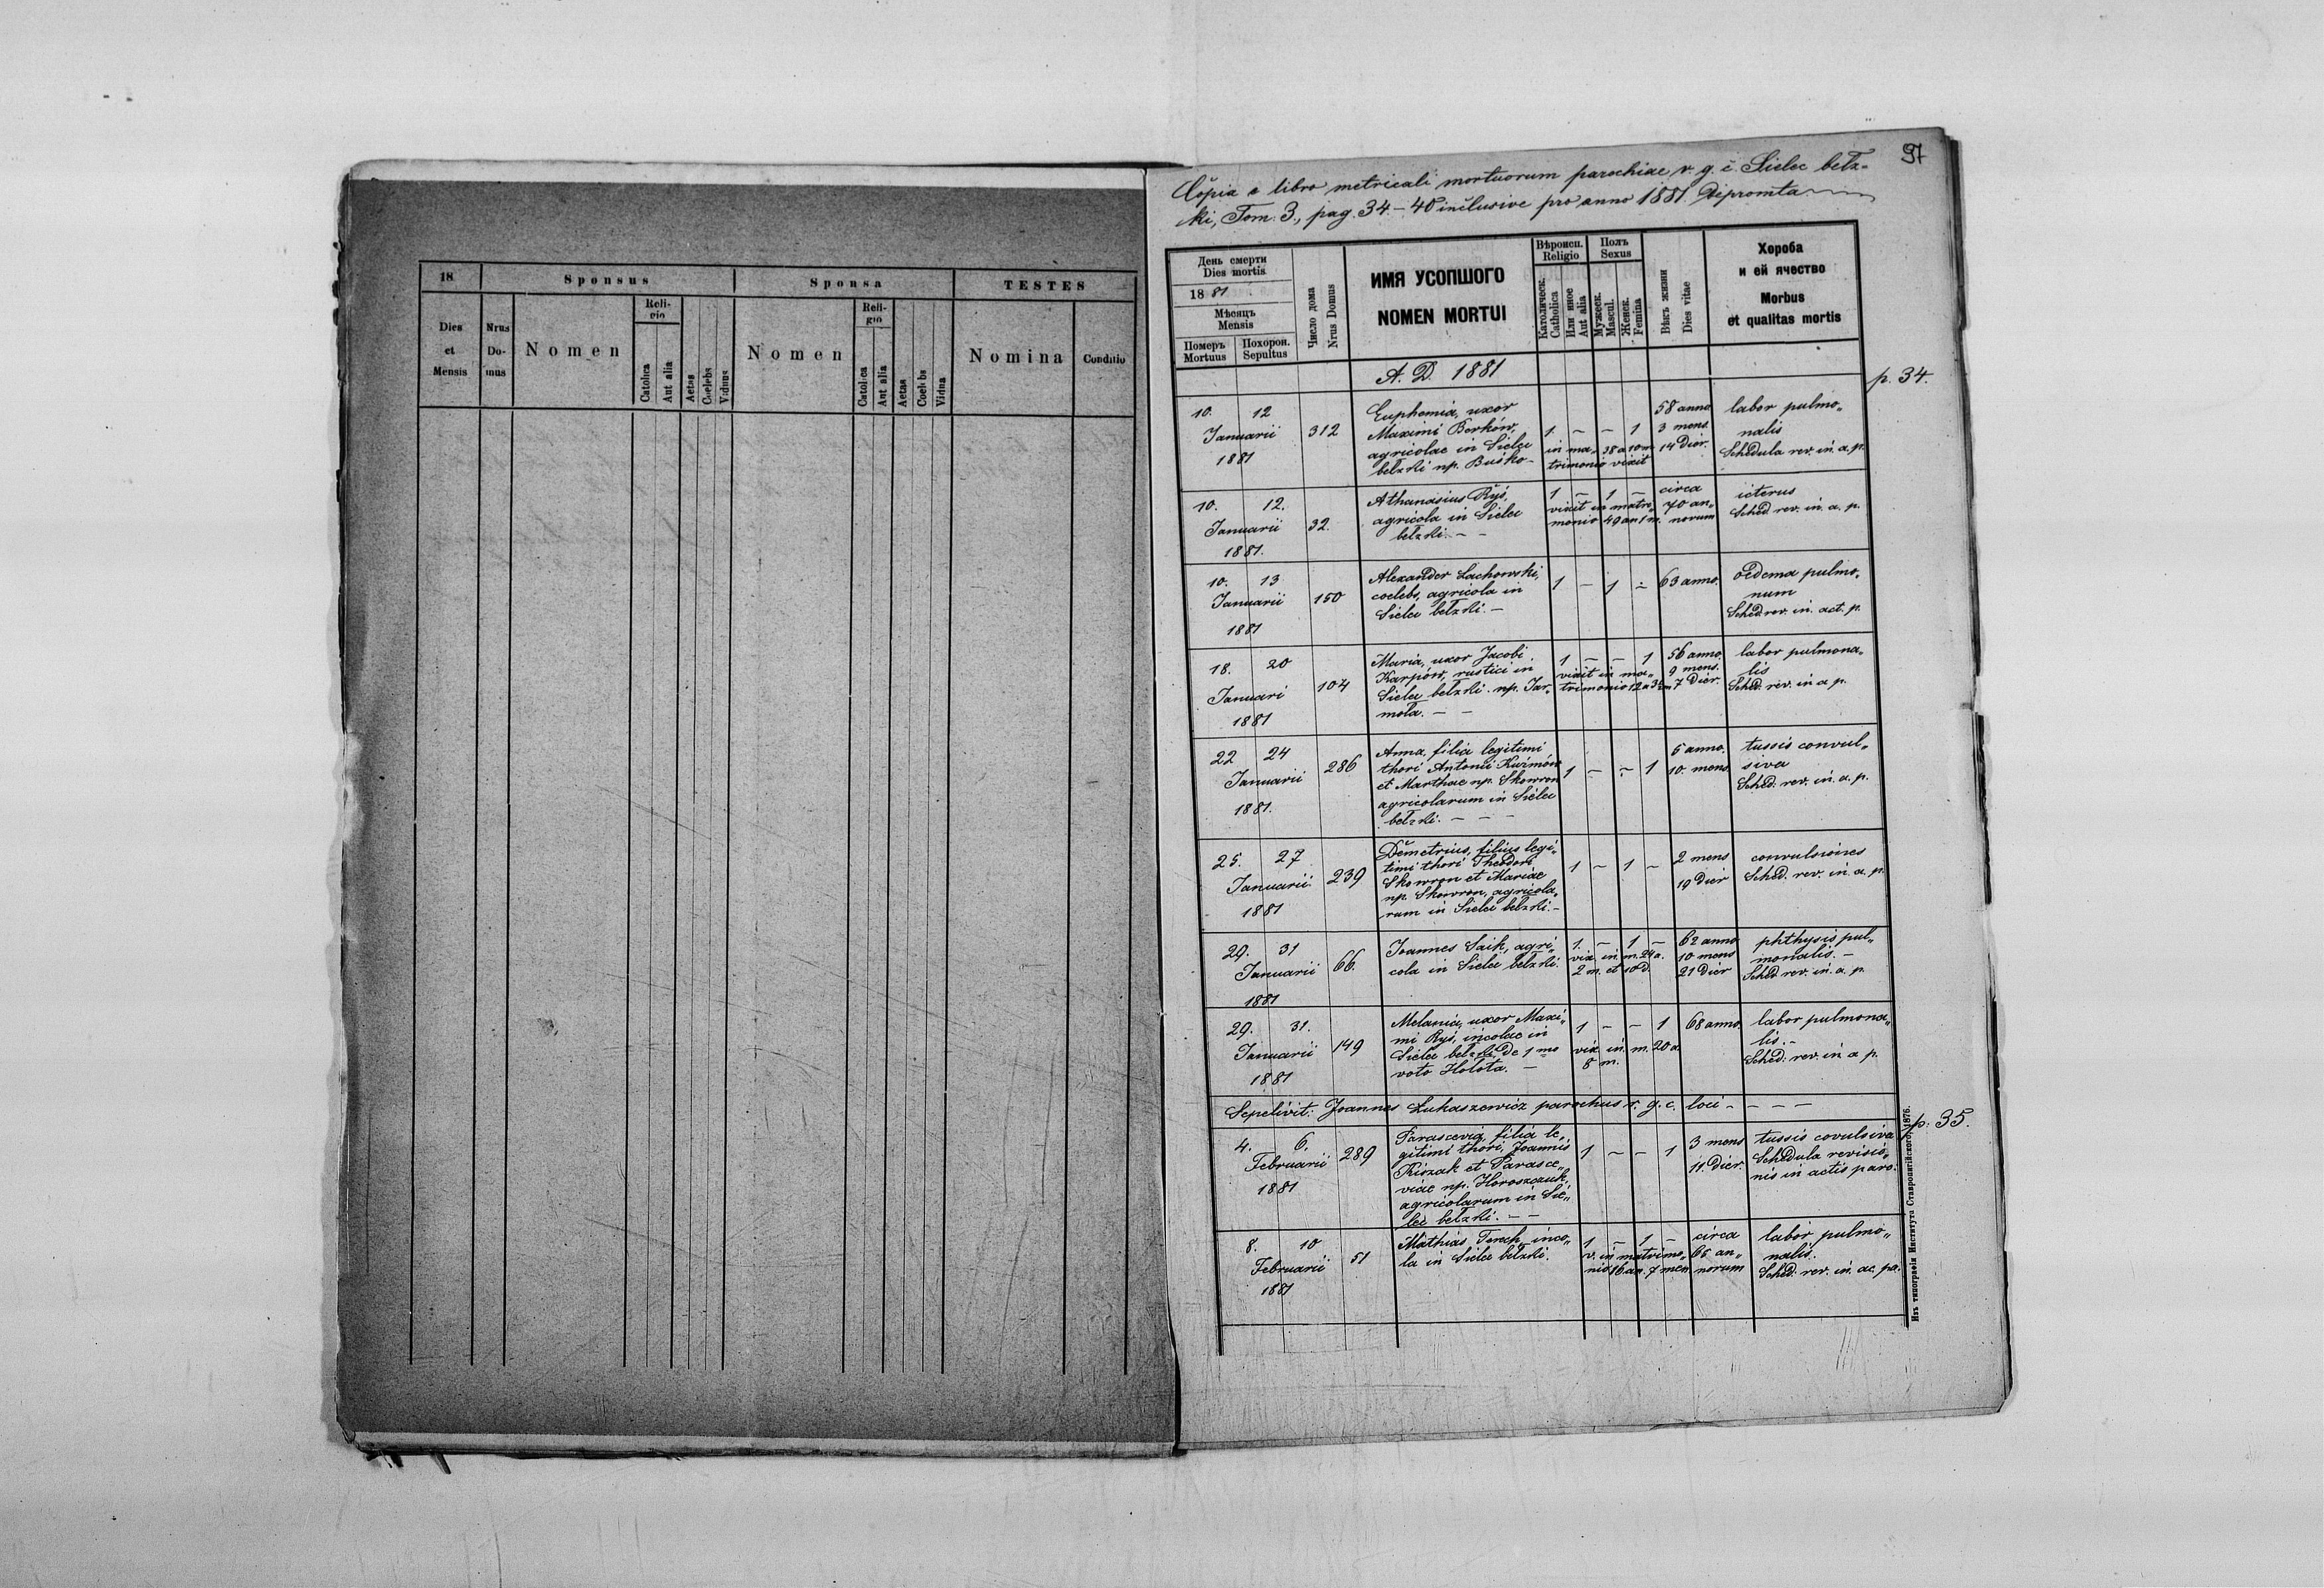 18
Sponsus
Sponsa
TESTES
Dies et Mensis
Nrus Do- mus
Nomen
Reli- gio
Catolica
Aut alia
Aetas
Coelebs
Viduus
Nomen
Reli- gio
Catolica
Aut alia
Aetas
Coelebs
Vidua
Nomina
Conditio
97
Copia e libro metricali mortuorum parochiae r. g. c. Sielec bełz-
ki, Tom: 3., pag. 34 - 40 inclusive pro anno 1881. Depromta
День смерти
Dies mortis
18 81
Мѣсяцъ
Mensis
Померъ
Mortuus
Похорон.
Sepultus
Число дома
Nrus Domus
ИМЯ УСОПШОГО
NOMEN MORTUI
Вѣроисп.
Religio
Католическ.
Catholica
Или иное
Aut alia
Полъ
Sexus
Мужеск.
Mascul.
Женск.
Femina
Вѣкъ жизни
Dies vitae
Хороба
и ей ячество
Morbus
et qualitas mortis
A. D. 1881
p. 34.
10. 12
Januarii
1881
312
Euphemia, uxor
Maximi Borków,
agricolae in Sielci
bełzki np. Buśko
1. - - 1
in ma- 38 a 10 m
trimonio vixit
58 anno.
3 mens.
14 Dier.
labor pulmo„
nalis
Schedula rev. in. a. p.
10. 12.
Januarii
1881.
32.
Athanasius Ryś,
agricola in Sielci
bełzki. - -
1 - 1 -
vixit in matri„
monio 49 an 1 m.
circa
70 an„
norum
icterus
Sched rev. in. a. p.
10. 13
Januarii
1881
150
Alexander Lachowski,
coelebs, agricola in
Sielci bełzki. -
1 - 1 -
63 anno.
oedema pulmo„
num
Sched rev. in. act. p.
18. 20
Januari
1881
104
Maria, uxor Jacobi
Karpów, rustici in
Sielci bełzki. np. Jar„
mola. - -
1 - - 1
vixit in ma„
trimonio 12 a 3 m
56 anno.
9 mens.
7 Dier.
labor pulmona„
lis
Sched. rev. in a p.
22 24
Januarii
1881.
286
Anna, filia legitimi
thori Antonii Kuźmów
et Marthae np. Skowron
agricolarum in Sielci
bełzki. - - -
1 - - 1
5 anno.
10. mens.
tussis convul„
siva
Sched: rev. in. a. p.
25. 27
Januarii
1881
239
Demetrius, filius legi„
timi thori Theodori
Skowron et Mariae
np. Skowron, agricola„
rum in Sielci bełzki. -
1 - 1 -
2 mens
19 Dier
convulsiones
Sched. rev. in. a. p.
29. 31
Januarii
1881
66.
Joannes Saik, agri„
cola in Sielci bełzki.
1. - 1 -
vix. in. m. 24 a.
2 m. et 10 d.
62 anno
10 mens
21 Dier
phthysis pul„
monalis. -
Sched rev. in. a. p.
29. 31.
Januarii
1881
149
Melania, uxor Maxi„
mi Ryś, incolae in
Sielci bełzki, De 1mo
voto Holota. -
1 - - 1
vix. in. m. 20 a.
8 m.
68 anno.
labor pulmona„
lis. -
Sched: rev. in a p.
Sepelivit: Joannes Łukaszewicz parochus r. g. c. loci - - - -
p. 35.
4. 6.
Februarii
1881
289
Parascevia, filia le„
gitimi thori, Joannis
Rirzak et Parasce„
viae np. Horoszczuk,
agricolarum in Sie„
lci bełzki. - -
1 - - 1
3 mens
11. Dier.
tussis covulsiva
Schedula revisio„
nis in actis paro:
8. 10
Februarii
1881
51
Mathias Terech, inco„
la in Sielci bełzki.
1 - 1 -
v. in matrimo„
nio 16 an. 7 men
circa
65 an„
norum
labor pulmo„
nalis.
Sched: rev. in. ac. pa.
Изъ типографіи Института Ставропигійского, 1876.